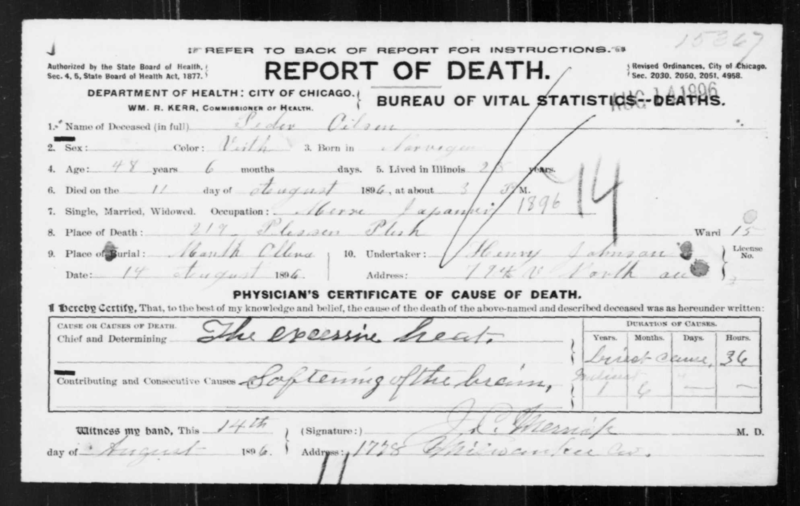 15367
REFER TO BACK OF REPORT FOR INSTRUCTIONS.
Authorized by the State Board of Health,
Sec. 4, 5, State Board of Health Act, 1877.
REPORT OF DEATH.
Revised Ordinances, City of Chicago.
Sec. 2030, 2050, 2051, 4958.
DEPARTMENT OF HEALTH: CITY OF CHICAGO.
WM. R. KERR, COMMISSIONER OF HEALTH.
BUREAU OF VITAL STATISTICS--DEATHS.
AUG 14 1896
1. Name of Deceased (in full) Peder Oilsen
2. Sex: Color: Veith 3. Born in Norwegen
4. Age: 48 years 6 months days. 5. Lived in Illinois 25 years.
6. Died on the 11 day of August 1896, at about 3 P M.
7. Single, Married, Widowed. Occupation:
1896
74
8. Place of Death: 217 Ward 15
9. Place of Burial: 10. Undertaker: Henry Johnson License No.
Date: 14 August 1896 Address: North av
PHYSICIAN'S CERTIFICATE OF CAUSE OF DEATH.
I Hereby Certify, That, to the best of my knowledge and belief, the cause of the death of the above-named and described deceased was as hereunder written:
CAUSE OR CAUSES OF DEATH.
Chief and Determining The excessive heat.
DURATION OF CAUSES.
Years. Months. Days. Hours.
Direct cause, 36
Contributing and Consecutive Causes Softening of the brain,
Indirect
1 6 — —
Witness my hand, This 14th
day of August 1896
(Signature: J. C. Merrick M. D.
Address: 1778 Milwaukee Av.
11